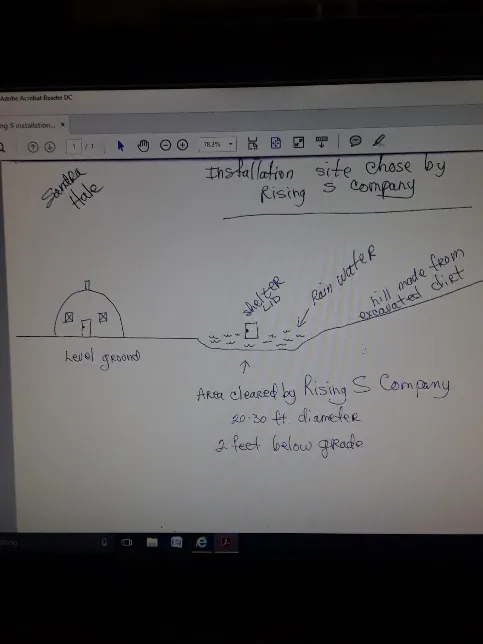 Adobe Acrobat Reader DC
ng S installation... ×
1 / 1
78.3%
Sandra
Hale
Installation site chose by
Rising S company
shelter
LID
Rain water
hill made from
excavated dirt
Level ground
Area cleared by Rising S Company
20-30 ft diameter
2 feet below grade